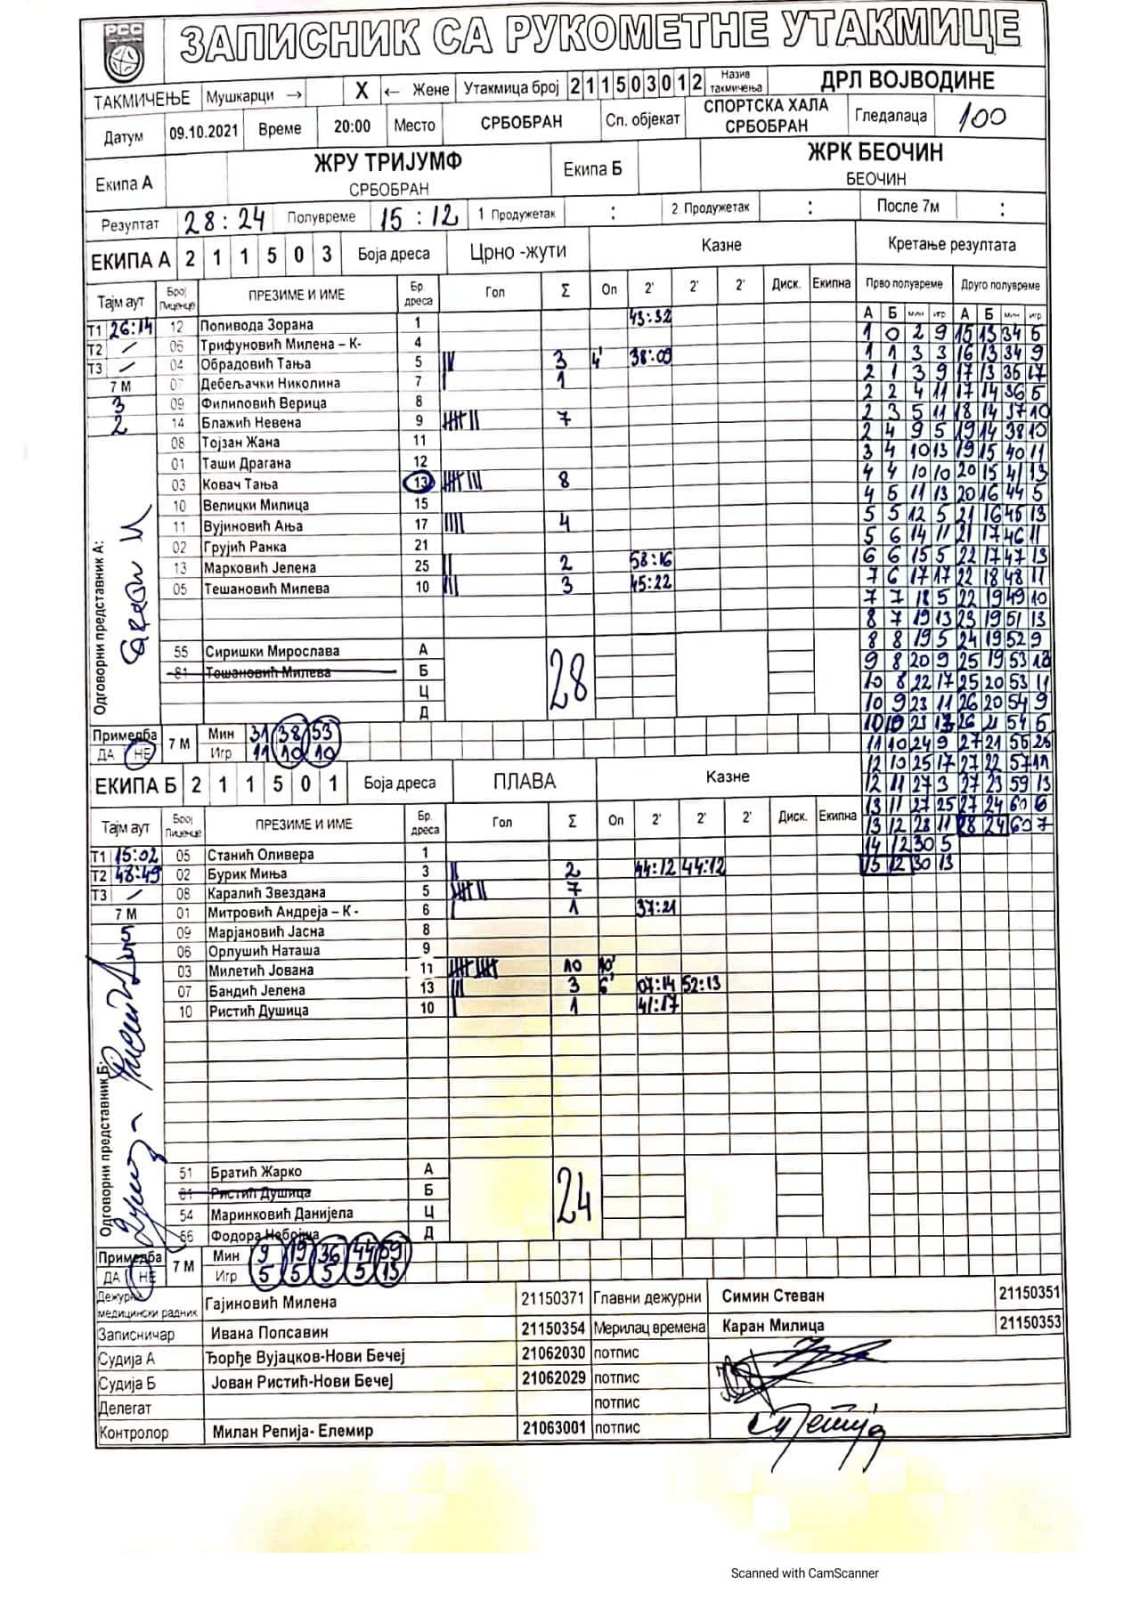 РСС
ЗАПИСНИК СА РУКОМЕТНЕ УТАКМИЦЕ
ТАКМИЧЕЊЕ Мушкарци → X ← Жене Утакмица број 211503012 Назив такмичења ДРЛ ВОЈВОДИНЕ
Датум 09.10.2021 Време 20:00 Место СРБОБРАН Сп. објекат СПОРТСКА ХАЛА СРБОБРАН Гледалаца 100
Екипа А ЖРУ ТРИЈУМФ СРБОБРАН Екипа Б ЖРК БЕОЧИН БЕОЧИН
Резултат 28:24 Полувреме 15:12 1 Продужетак : 2 Продужетак : После 7м :
ЕКИПА А 2 1 1 5 0 3 Боја дреса Црно -жути Казне Кретање резултата
Тајм аут Број Лиценце ПРЕЗИМЕ И ИМЕ Бр. дреса Гол Σ Оп 2' 2' 2' Диск. Екипна Прво полувреме Друго полувреме
А Б мин игр А Б мин игр
Т1 26:14 12 Поповода Зорана 1 43:32
Т2 / 06 Трифуновић Милена – К- 4
Т3 / 04 Обрадовић Тања 5 3 4' 38:09
7 М 07 Дебељачки Николина 7 1
3 09 Филиповић Верица 8
2 14 Блажић Невена 9 7
08 Тојзан Жана 11
01 Таши Драгана 12
03 Ковач Тања 13 8
10 Велицки Милица 15
11 Вујиновић Ања 17 4
02 Грујић Ранка 21
13 Марковић Јелена 25 2 58:16
05 Тешановић Милева 10 3 45:22
Одговорни представник А:
55 Сиришки Мирослава А
81 Тешановић Милева Б
Ц
Д
28
Примедба ДА НЕ 7 М Мин 31 38 53
Игр 11 10 10
1 0 2 9 15 13 34 5
1 1 3 3 16 13 34 9
2 1 3 9 17 13 36 17
2 2 4 11 17 14 36 5
2 3 5 11 18 14 37 10
2 4 9 5 19 14 38 10
3 4 10 13 19 15 40 11
4 4 10 10 20 15 41 13
4 5 11 13 20 16 44 5
5 5 12 5 21 16 45 13
5 6 14 11 21 17 46 11
6 6 15 5 22 17 47 13
7 6 17 17 22 18 48 11
7 7 18 5 22 19 49 10
8 7 19 13 23 19 51 13
8 8 19 5 24 19 52 9
9 8 20 9 25 19 53 13
10 8 22 17 25 20 53 11
10 9 23 11 26 20 54 9
10 10 23 13 26 21 54 5
11 10 24 9 27 21 55 25
12 10 25 17 27 22 57 11
12 11 27 3 27 23 59 13
13 11 27 25 27 24 60 6
13 12 28 11 28 24 60 7
14 12 30 5
15 12 30 13
ЕКИПА Б 2 1 1 5 0 1 Боја дреса ПЛАВА Казне
Тајм аут Број Лиценце ПРЕЗИМЕ И ИМЕ Бр. дреса Гол Σ Оп 2' 2' 2' Диск. Екипна
Т1 15:02 05 Станић Оливера 1
Т2 48:49 02 Бурик Миња 3 2 44:12 44:12
Т3 / 08 Каралић Звездана 5 7
7 М 01 Митровић Андреја – К - 6 1 37:21
5 09 Марјановић Јасна 8
5 06 Орлушић Наташа 9
03 Милетић Јована 11 10 10'
07 Бандић Јелена 13 3 6' 07:14 52:13
10 Ристић Душица 10 1 41:17
Одговорни представник Б:
51 Братић Жарко А
81 Ристић Душица Б
54 Маринковић Данијела Ц
66 Фодора Небојша Д
24
Примедба ДА НЕ 7 М Мин 9 19 36 44 59
Игр 5 5 5 5 13
Дежурни медицински радник Гајиновић Милена 21150371 Главни дежурни Симин Стеван 21150351
Записничар Ивана Попсавин 21150354 Мерилац времена Каран Милица 21150353
Судија А Ђорђе Вујацков-Нови Бечеј 21062030 потпис
Судија Б Јован Ристић-Нови Бечеј 21062029 потпис
Делегат потпис
Контролор Милан Репија- Елемир 21063001 потпис
Scanned with CamScanner